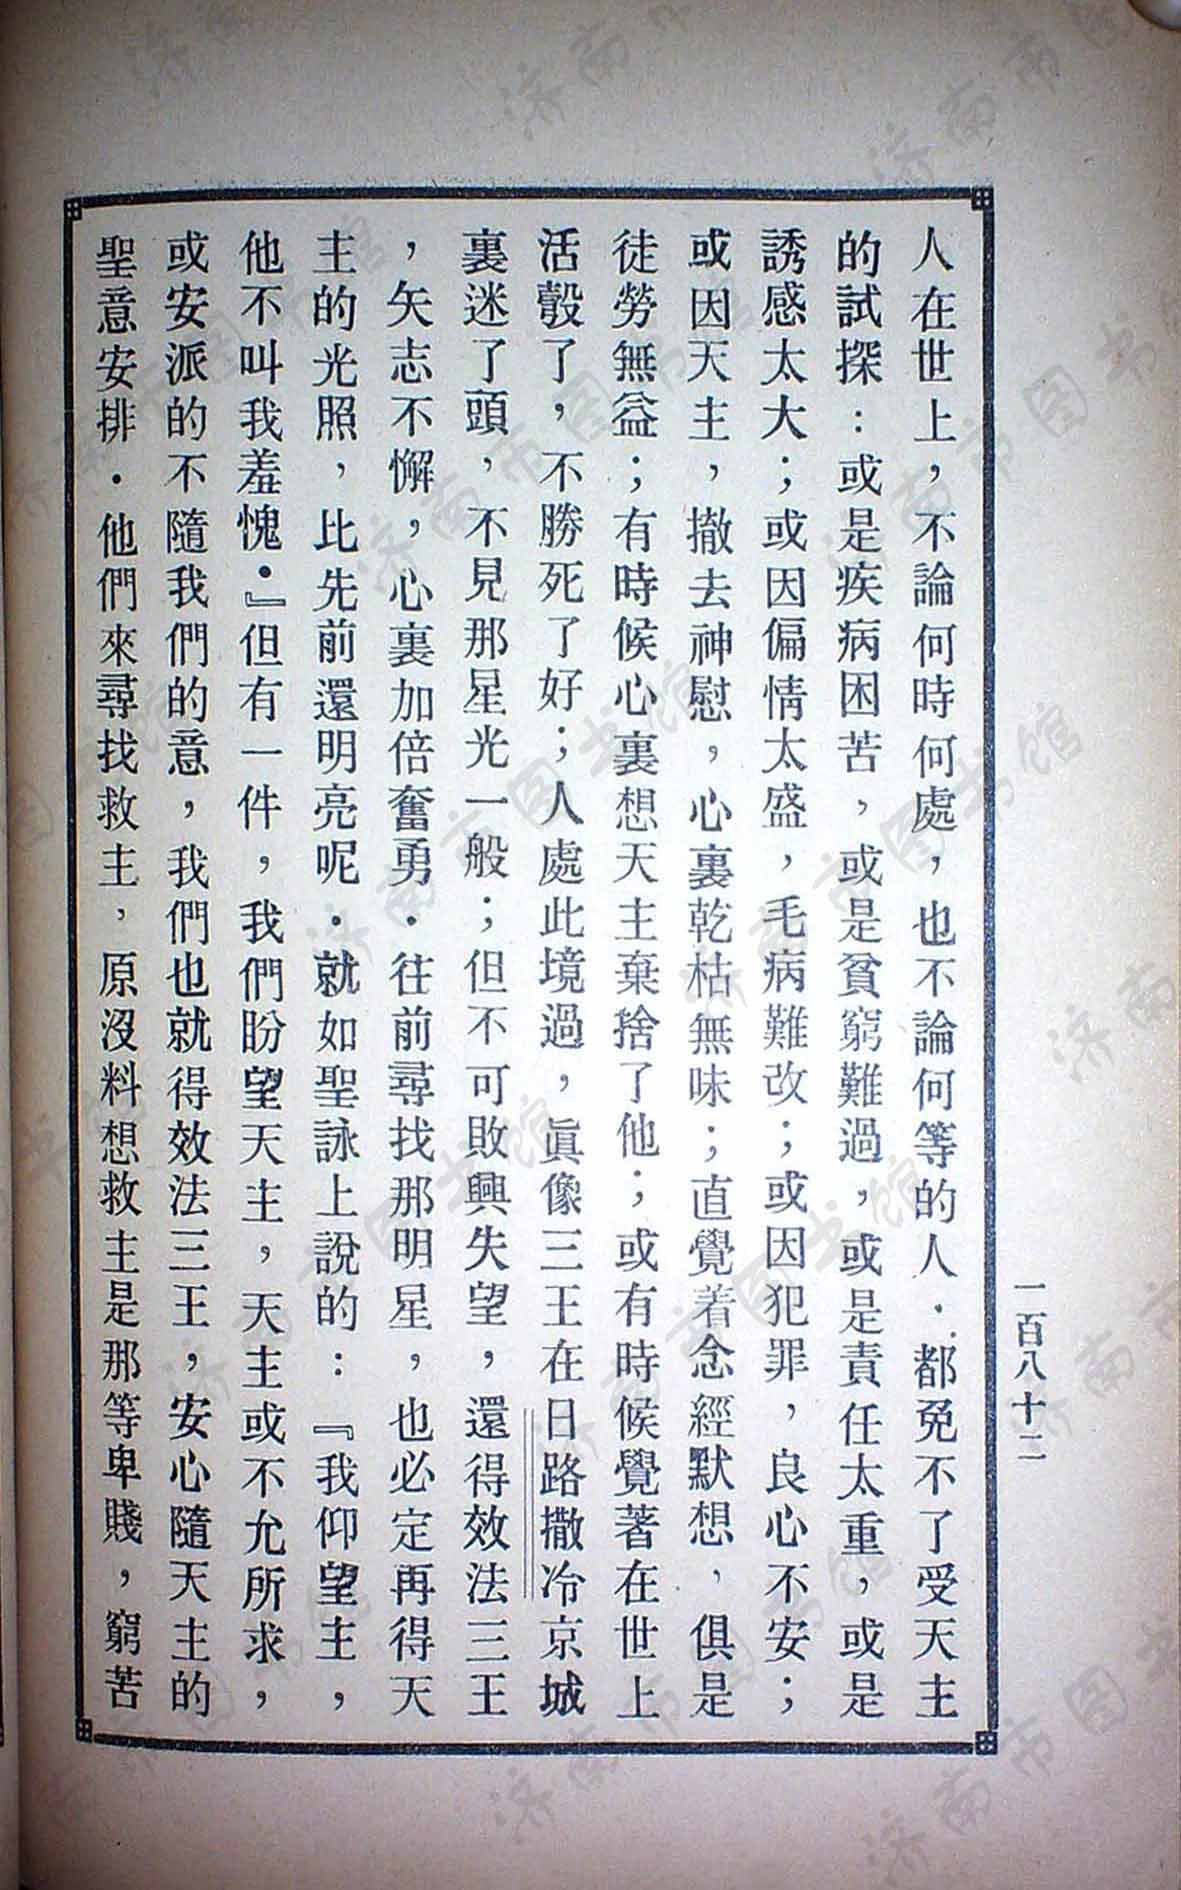 人在世上，不論何時何處，也不論何等的人．都免不了受天主
的試探：或是疾病困苦，或是貧窮難過，或是責任太重，或是
誘感太大；或因偏情太盛，毛病難改；或因犯罪，良心不安；
或因天主，撤去神慰，心裏乾枯無味；直覺着念經默想，俱是
徒勞無益；有時候心裏想天主棄捨了他；或有時候覺著在世上
活彀了，不勝死了好；人處此境過，眞像三王在日路撒冷京城
裏迷了頭，不見那星光一般；但不可敗興失望，還得效法三王
，矢志不懈，心裏加倍奮勇．往前尋找那明星，也必定再得天
主的光照，比先前還明亮呢．就如聖詠上說的：『我仰望主，
他不叫我羞愧．』但有一件，我們盼望天主，天主或不允所求，
或安派的不隨我們的意，我們也就得效法三王，安心隨天主的
聖意安排．他們來尋找救主，原沒料想救主是那等卑賤，窮苦
一百八十二
济南市图书馆